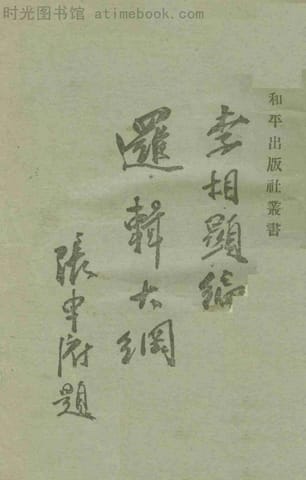 时光图书馆 atimebook.com
和平出版社叢書
李相顯編
邏輯大綱
張申府題